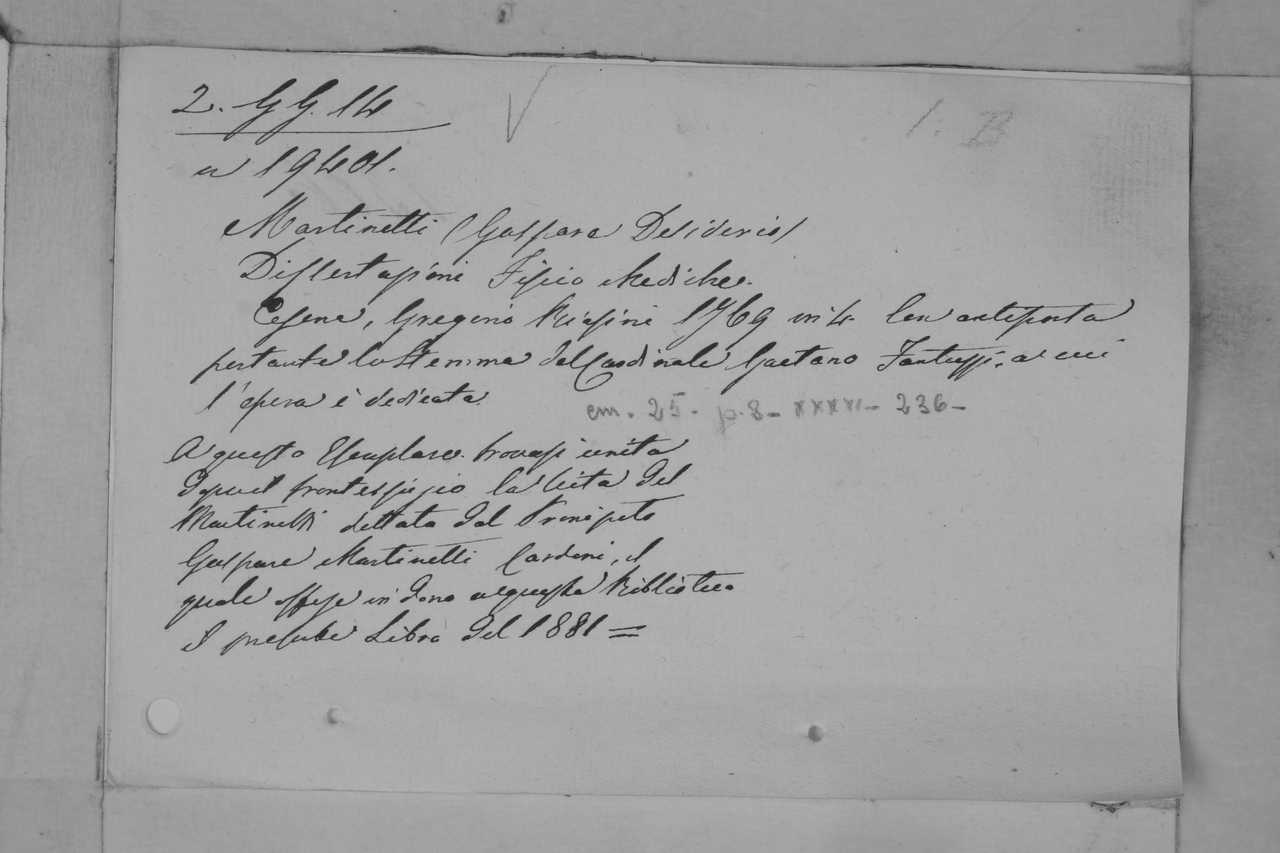 2. GG. 14
1. B
n 19401.
Martinetti (Gaspare Desiderio)
Dissertazioni Fisico Mediche.
Cesena, Gregorio Biasini 1769 in 4. Con anteporta
portante lo Stemma del Cardinale Gaetano Fantuzzi. a cui
l'opera è dedicata
cm. 25. p. 8 - XXXXI - 236 -
A questo Esemplare trovasi unita
dopo il frontespizio la Vita del
Martinetti dettata dal Pronipote
Gaspare Martinetti Cardoni, il
quale offese in dono a questa Biblioteca
il presente Libro del 1881 =